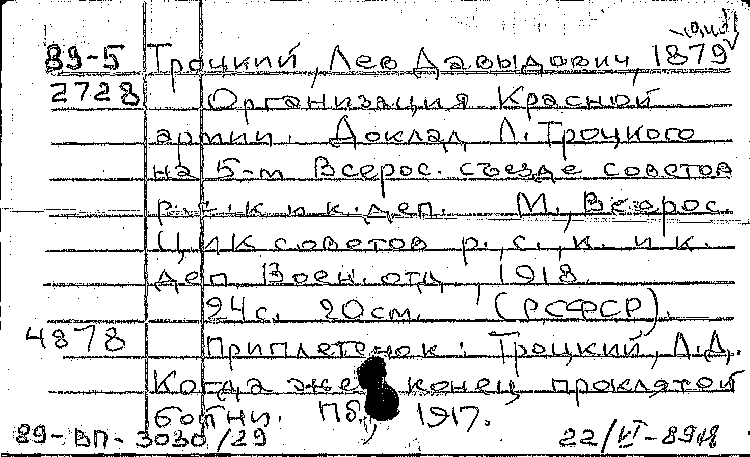 89-5 Троцкий, Лев Давыдович, 1879
2728 Организация Красной
армии. Доклад Л. Троцкого
на 5-м Всерос. съезде советов
р. с. к и к. деп. М., Всерос.
ЦИК советов р., с., к. и к.
деп. Воен. отд., 1918.
24 с. 20 см. (РСФСР).
4878 Приплетенок: Троцкий, Л.Д.
Когда же конец проклятой
бойни. Пб., 1917.
89-ВП-3030/29 22/VI-89